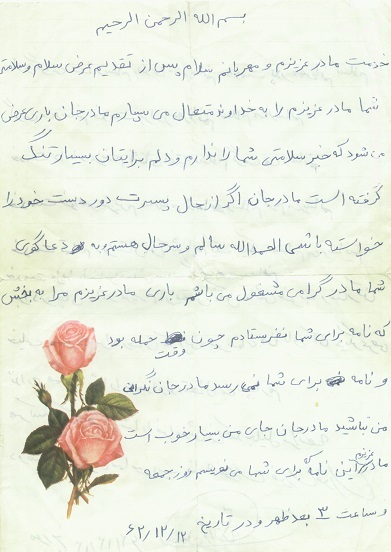 بسم الله الرحمن الرحیم
خدمت مادر عزیزم و مهربانم سلام پس از تقدیم عرض سلام و سلامتی
شما مادر عزیزم را به خداوند متعال می سپارم مادر جان باری عرض
می شود که خبر سلامتی شما را ندارم و دلم برایتان بسیار تنگ
گرفته است مادر جان اگر از حال پسرت دور دست خود را
خواسته باشی الحمدالله سالم و سرحال هستم و به دعا گوی
شما مادر گرامی مشغول می باشم باری مادر عزیزم مرا به بخش
که نامه برای شما نفرستادم چون وقت حمله بود
و نامه برای شما نمی رسد مادر جان نگران
من نباشید مادر جان جای من بسیار خوب است
مادر عزیزم این نامه که برای شما می نویسم روز جمعه
و ساعت ۳ بعد ظهر و در تاریخ ۶۲/۱۲/۱۲